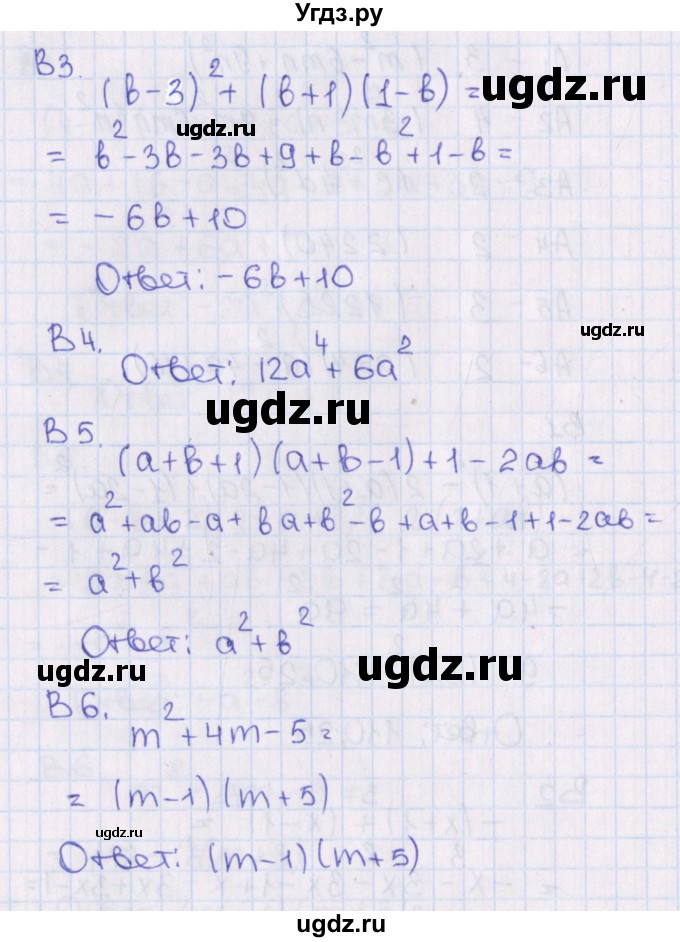 Угдз.ру
В3.
(в-3)² + (в+1)(1-в) =
ugdz.ru
ugdz.ru
= в² - 3в - 3в + 9 + в - в² + 1 - в =
= - 6в + 10
Ответ: - 6в + 10
ugdz.ru
В4.
Ответ: 12a⁴ + 6a²
ugdz.ru
В5.
(a+в+1)(a+в-1)+1-2aв =
= a²+aв-a+вa+в²-в+a+в-1+1-2aв =
= a²+в²
Ответ: a²+в²
ugdz.ru
ugdz.ru
В6.
m²+4m-5=
= (m-1)(m+5)
ugdz.ru
Ответ: (m-1)(m+5)
ugdz.ru